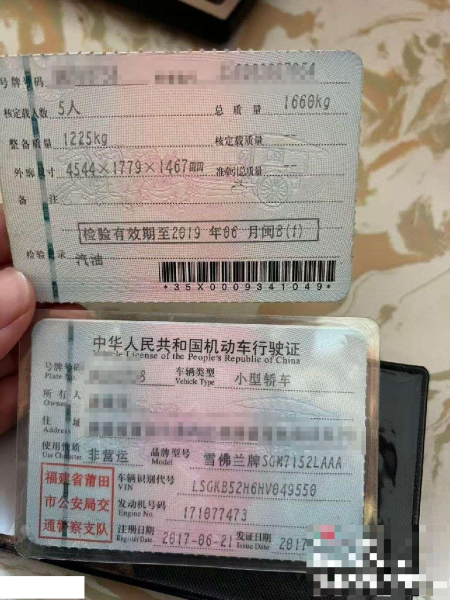 号牌号码
核定载人数 5人 总质量 1660kg
整备质量 1225kg 核定载质量
外廓尺寸 4544×1779×1467㎜ 准牵引总质量 --
备注
检验有效期至2019年06月闽B(f)
检验记录 汽油
*35X0009341049*
中华人民共和国机动车行驶证
Vehicle License of the People's Republic of China
号牌号码 车辆类型 小型轿车
Plate No. Vehicle Type
所有人
Owner
住址
Address
使用性质 非营运 品牌型号 雪佛兰牌SGM7152LAAA
Use Character Model
福建省莆田 车辆识别代号 LSGKB52H6HV049550
VIN
市公安局交 发动机号码 171077473
Engine No.
通警察支队 注册日期 2017-06-21 发证日期 2017
Register Date Issue Date